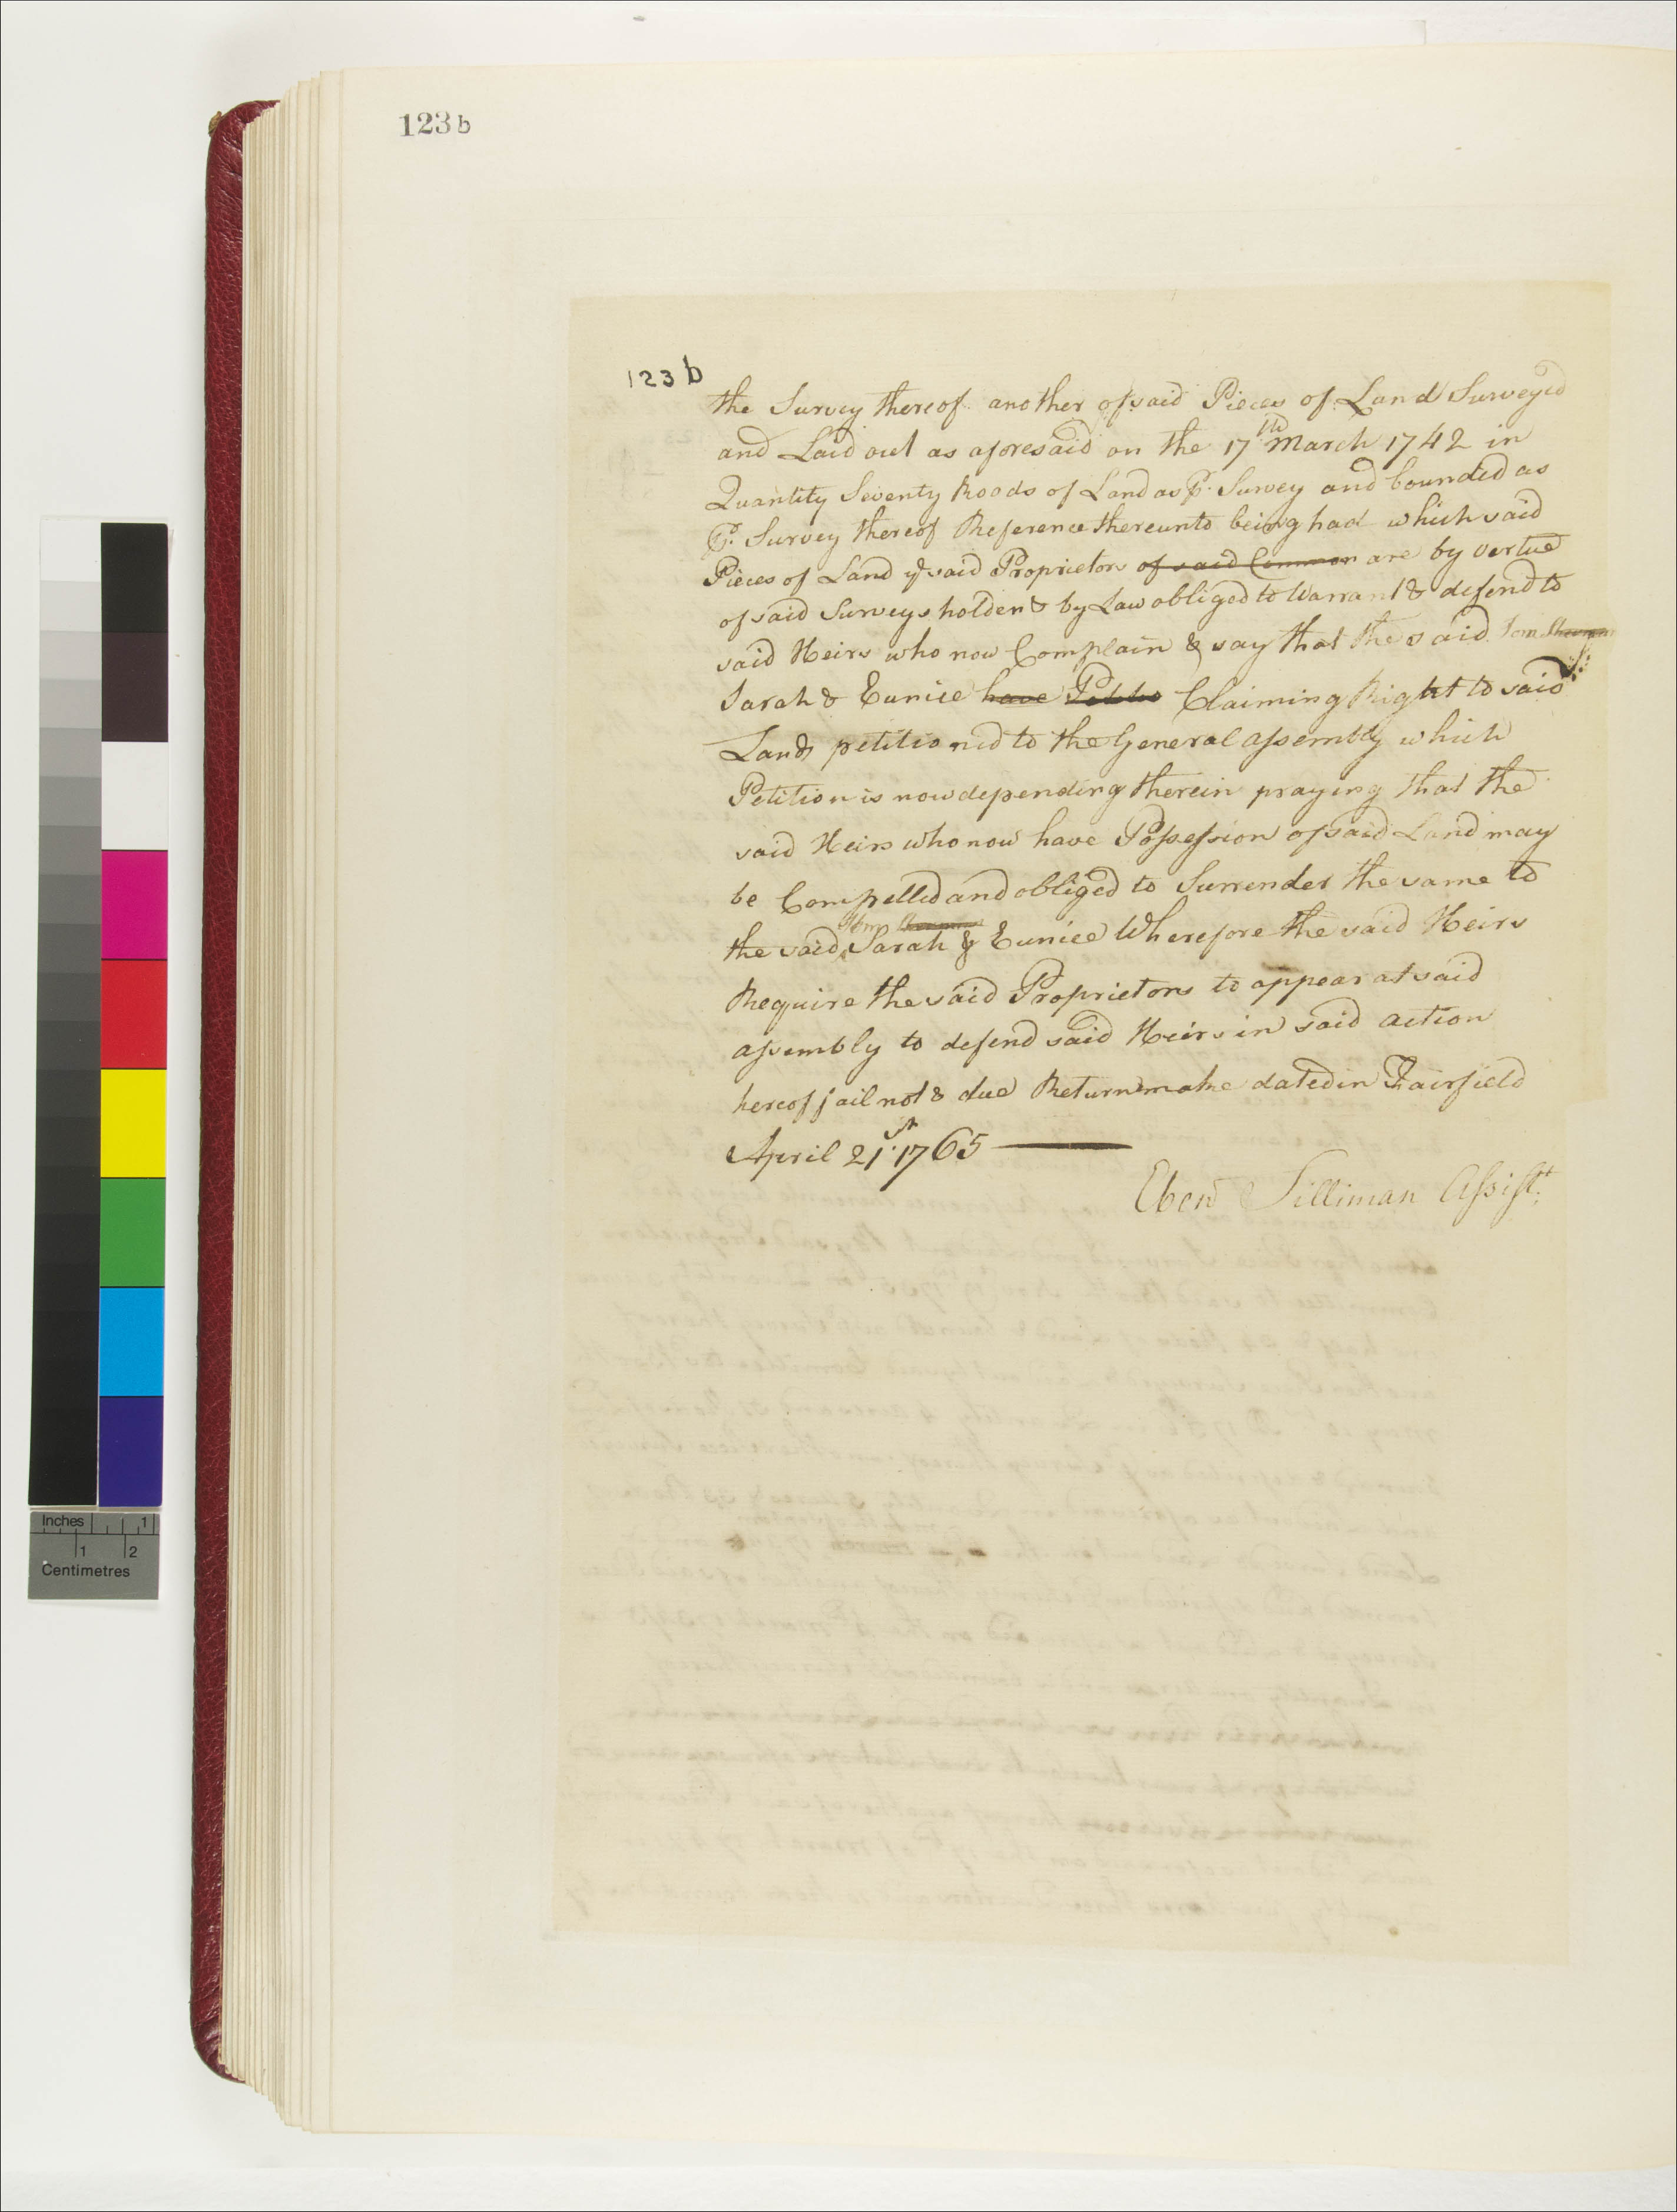 123 b
123 b
the Survey thereof another of said Pieces of Land Surveyed
and Laid out as aforesaid on the 17th March 1742 in
Quantity Seventy Roods of Land as P. Survey and bounded as
P. Survey thereof Reference thereunto being had which said
Pieces of Land ye said Proprietors of said Common are by vertue
of said Surveys holden & by Law obliged to Warrant & defend to
said Heirs who now Complain & say that the said Tom
Sarah & Eunice have Claiming Right to said
Lands petitioned to the General assembly which
Petition is now depending therein praying that the
said Heirs who now have Possession of said Land may
be Compelled and obliged to Surrender the same to
Tom
the said Sarah & Eunice Wherefore the said Heirs
Require the said Proprietors to appear at said
assembly to defend said Heirs in said action
hereof fail not & due Return make dated in Fairfield
April 21st 1765
Ebenr Silliman Assist.
Inches 1
1 2
Centimetres